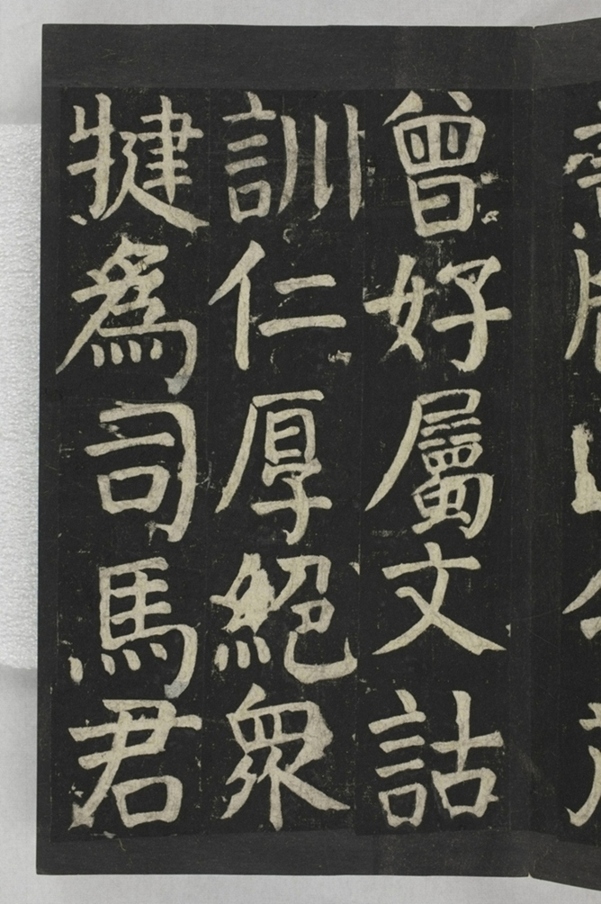 曾好屬文詁
訓仁厚絕衆
揵為司馬君